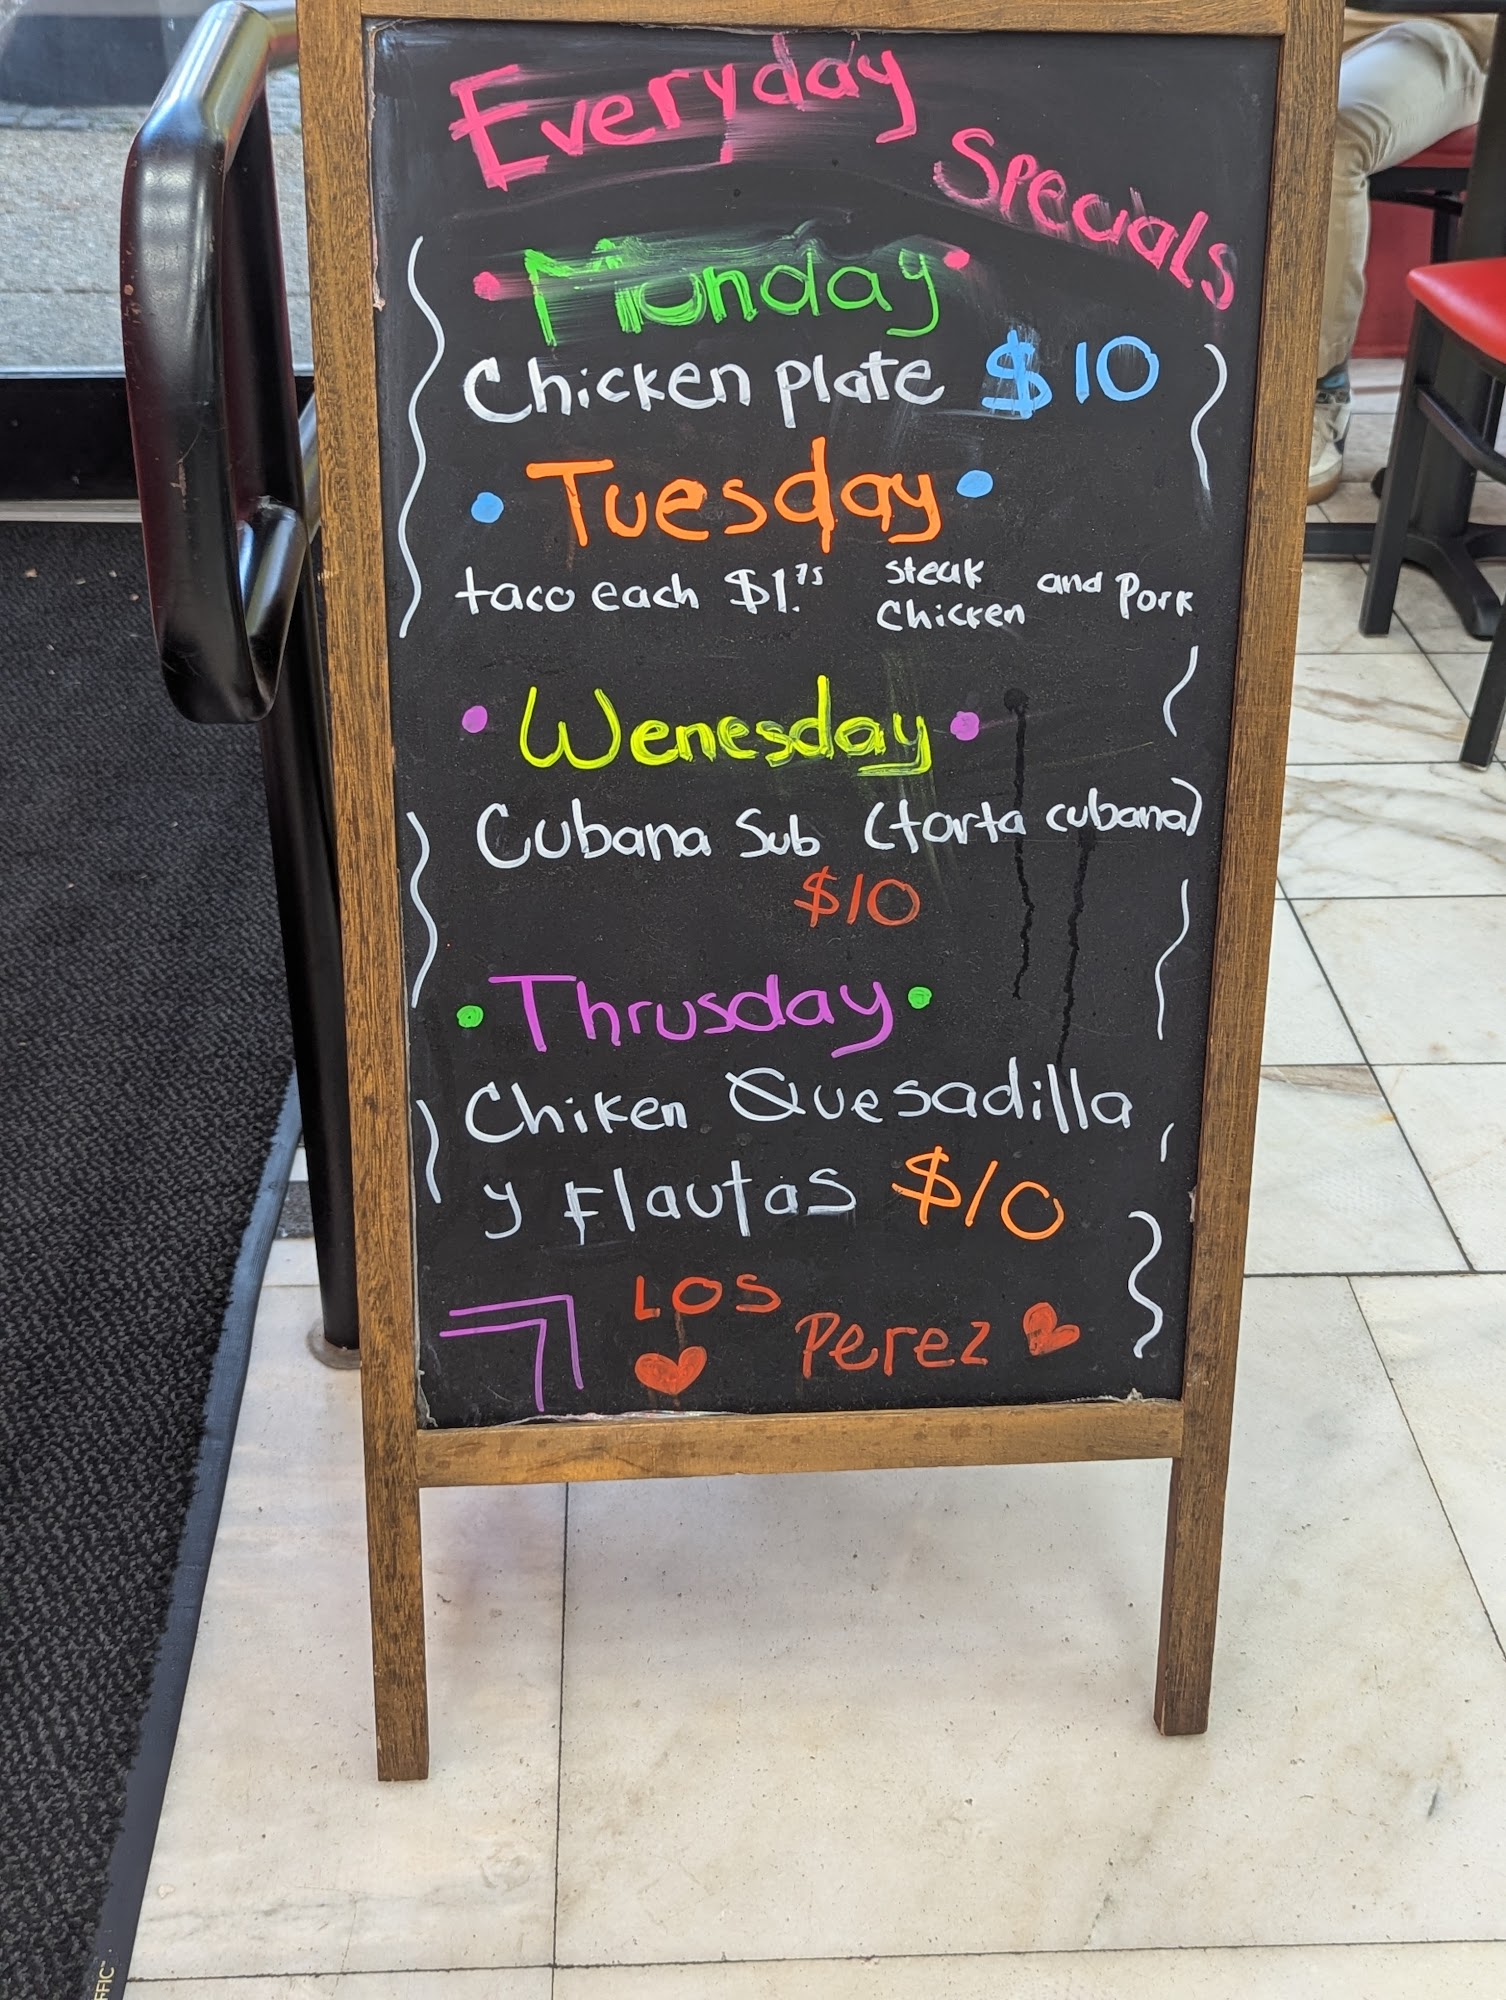 Everyday
Specials
Monday
Chicken plate $10
Tuesday
taco each $1.75 steak Chicken and Pork
Wenesday
Cubana Sub (torta cubana)
$10
Thrusday
Chiken Quesadilla
y Flautas $10
LOS
Perez
FFIC™